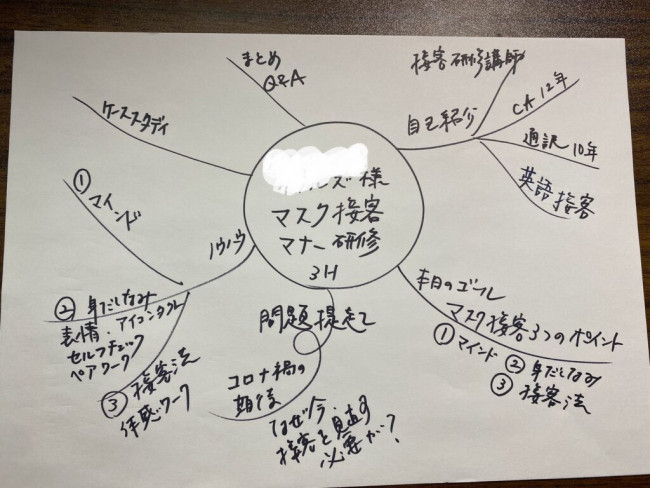 ズ様
マスク接客
マナー研修
3H
自己紹介
接客研修講師
CA 12年
通訳 10年
英語接客
本日のゴール
マスク接客3つのポイント
① マインド
② 身だしなみ
③ 接客法
問題提起
コロナ禍の
なぜ今
接客を見直す
必要が?
ノウハウ
① マインド
② 身だしなみ
表情・アイコンタクト
セルフチェック
ペアワーク
③ 接客法
体感ワーク
ケーススタディ
まとめ
Q&A